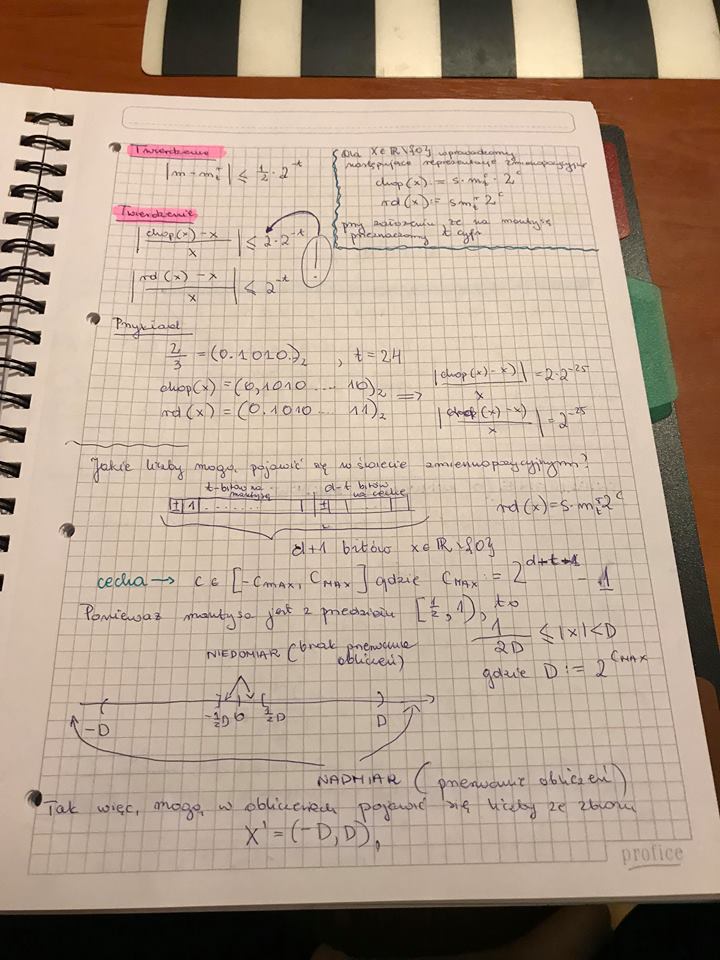 Twierdzenie
|m - m_t^r| ≤ 1/2 · 2^-t
Dla x∈ℝ\{0} wprowadzamy
następujące reprezentacje zmiennopozycyjne
chop(x) := s·m_t^r · 2^c
rd(x) := s m_t^r 2^c
przy założeniu że na mantysę
przeznaczamy t cyfr
Twierdzenie
|(chop(x) - x)/x| ≤ 2·2^-t
|(rd(x) - x)/x| ≤ 2^-t
Przykład
2/3 = (0.1010.)₂ , t = 24
chop(x) = (0,1010 .... 10)₂ ⟹ |(chop(x) - x)/x| = 2·2^-25
rd(x) = (0.1010 ... 11)₂ |(x) - x)/x| = 2^-25
Jakie liczby mogą pojawić się w świecie zmiennopozycyjnym?
t-bitów na mantysę
d-t bitów na cechę
± 1 ........ ±
rd(x) = s·m_t^r 2^c
d+1 bitów x∈ℝ\{0}
cecha → c ∈ [-C_MAX, C_MAX] gdzie C_MAX := 2^ - 1
Ponieważ mantysa jest z przedziału [1/2, 1), to
1/2D ≤ |x| < D
gdzie D := 2^C_MAX
NIEDOMIAR (brak przerwania
obliczeń)
-D -1/2D 0 1/2D D
NADMIAR (przerwanie obliczeń)
Tak więc, mogą w obliczeniach pojawić się liczby ze zbioru
X' = (-D, D),
profice